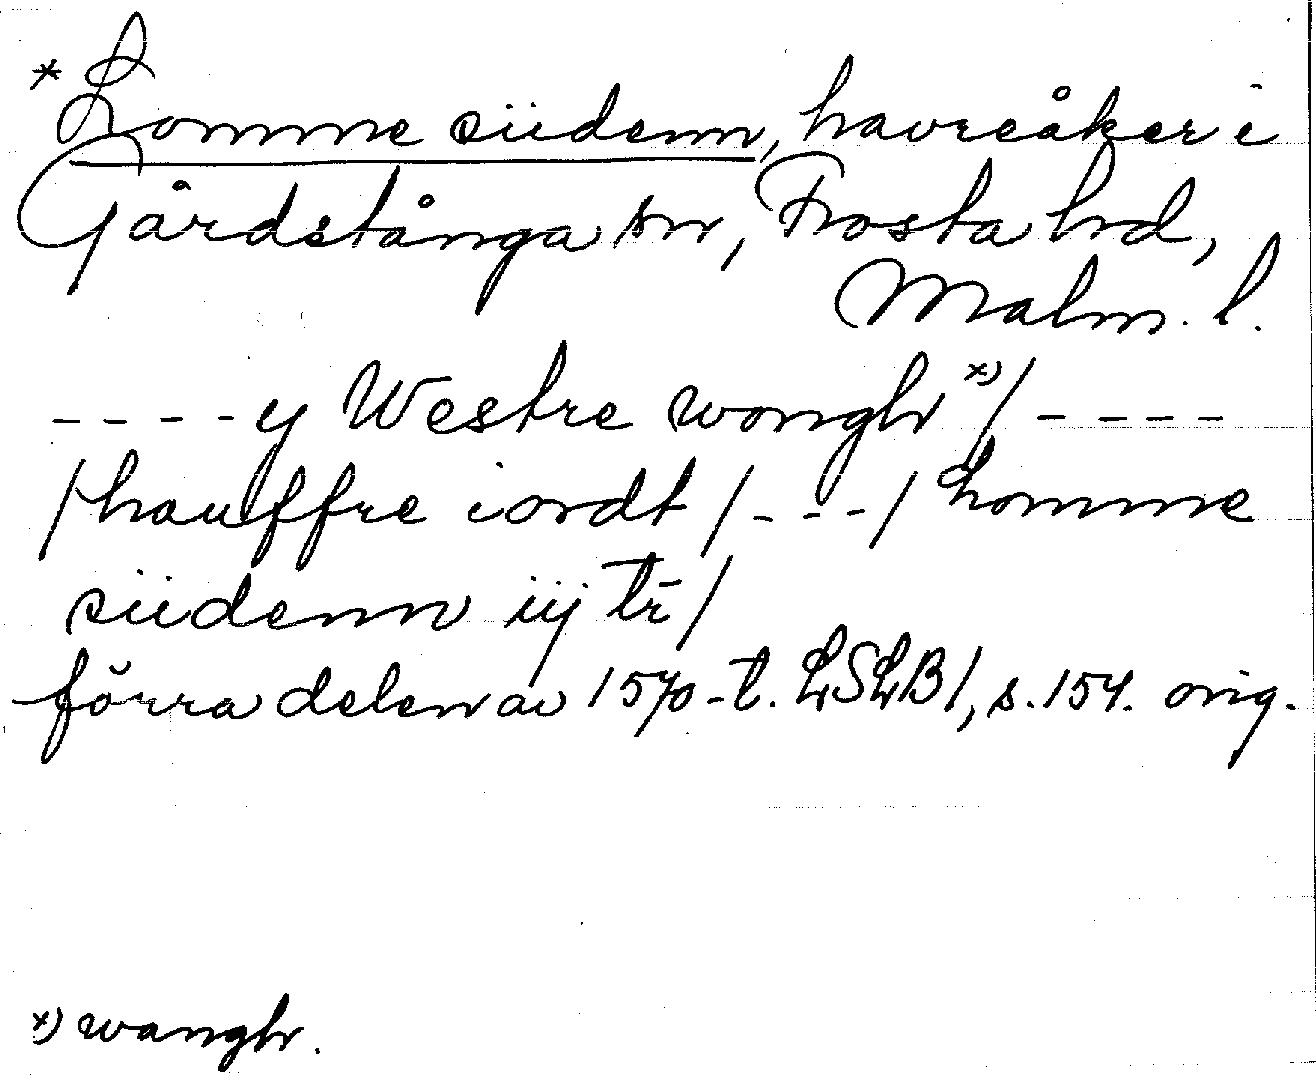 * Lomme siidenn, havreåker i
Gårdstånga sn, Frosta hd,
Malm. l.
- - - - y Westre wongh *) / - - - -
/ hauffre iordt / - - - / lomme
siidenn iij tr /
förra delen av 1570-t. LSLB 1, s. 154. orig.
*) wangh.